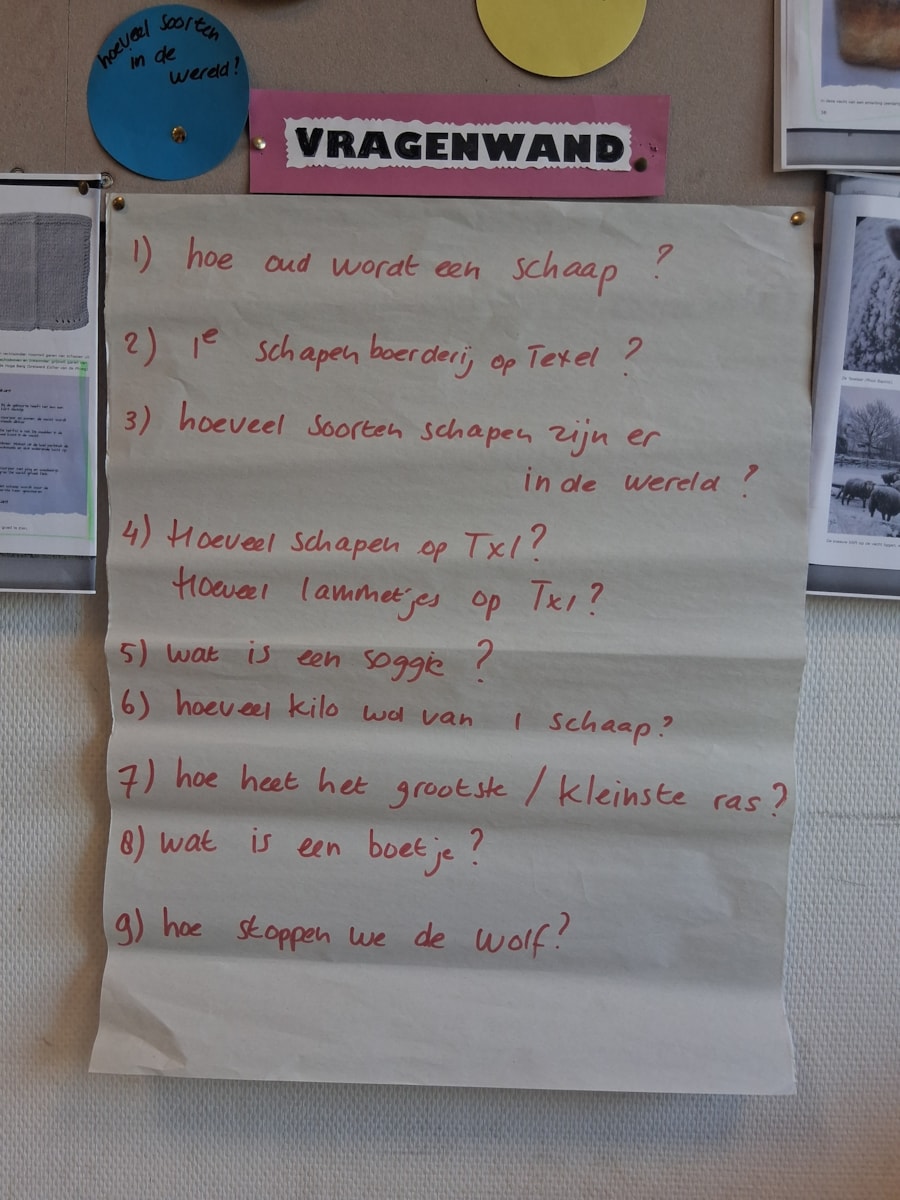 hoeveel soorten
in de
wereld?
VRAGENWAND
1) hoe oud wordt een schaap ?
2) 1e schapenboerderij op Texel ?
3) hoeveel soorten schapen zijn er
in de wereld ?
4) Hoeveel schapen op Txl?
Hoeveel lammetjes op Txl?
5) wat is een soggie ?
6) hoeveel kilo wol van 1 schaap?
7) hoe heet het grootste / kleinste ras?
8) wat is een boetje?
9) hoe stoppen we de wolf?